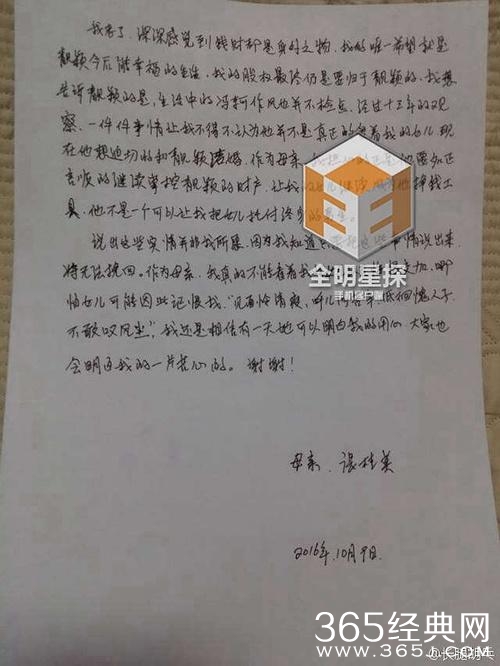 我老了,深深感觉到钱财都是身外之物,我的唯一希望就是
靓颖今后能幸福的生活,我的股权最终仍是要归于靓颖的,我想
告诉靓颖的是,生活中的冯轲作风也并不检点,经过十三年的观
察,一件件事情让我不得不认为他并不是真正的爱着我的女儿现
在他想迫切的和靓颖结婚,作为母亲,我担心的正是他要如正
言顺的继续掌控靓颖的财产,让我的女儿继续成为他挣钱工
具,他不是一个可以让我把女儿托付终身的男生。
说出这些实情并非我所愿,因为我知道 把这些事情说出来
将无法挽回。作为母亲,我真的不能看着我 哪
怕女儿可能因此记恨我,"见面怜清瘦,呼儿问苦辛,低徊愧人子,
不敢叹风尘",我还是相信有一天她可以明白我的用心,大家也
会明白我的一片苦心的。谢谢!
母亲:张桂英
2016年10月9日
全明星探
手机客户端
365经典网
www.365J.COM
@长腿胡中